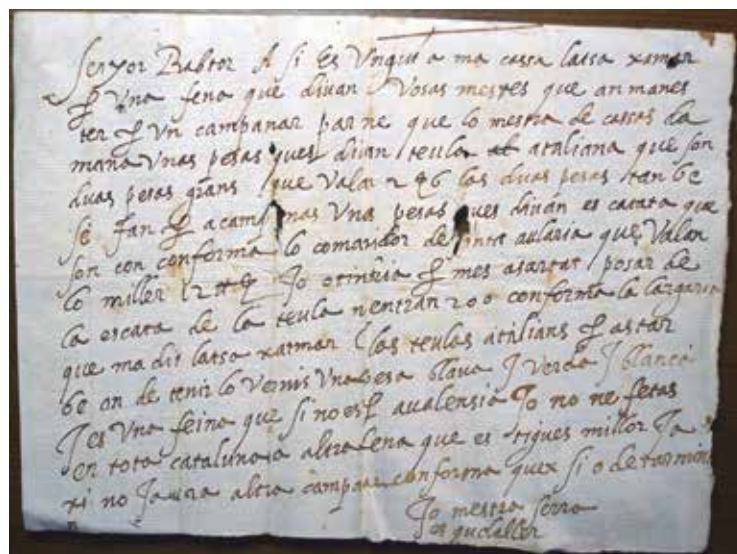 senyor Rabtor A si Es Vngut a ma cassa latsa xamar
per Vna fena que diuan Vosas mestes que an manes
ter per Vn campanar par ne que lo mestra de cassas da
mana Vnas pesas ques diuan teula ataliana que son
duas pesas grans que Valan las duas pesas tan be
se fan per a campanas Vna pesas ques diuan es catata que
son con conforma lo comaridor de santa aularia que Valan
lo miller Jo per mes asartat posar de
la escata de la teula nentran 200 conforma la largaria
que ma dit latsa xatmar las teulas atalians per astar
be an de tenir lo Vernis Vna pesa blaua J Verda J blanca
J es Vna feina que si no es per aualensia Jo no ne fetas
en tota cataluna altra que es tigues millor
xi no altra campanar conforma quex si o determin
Jo mestra serra
es gudaller